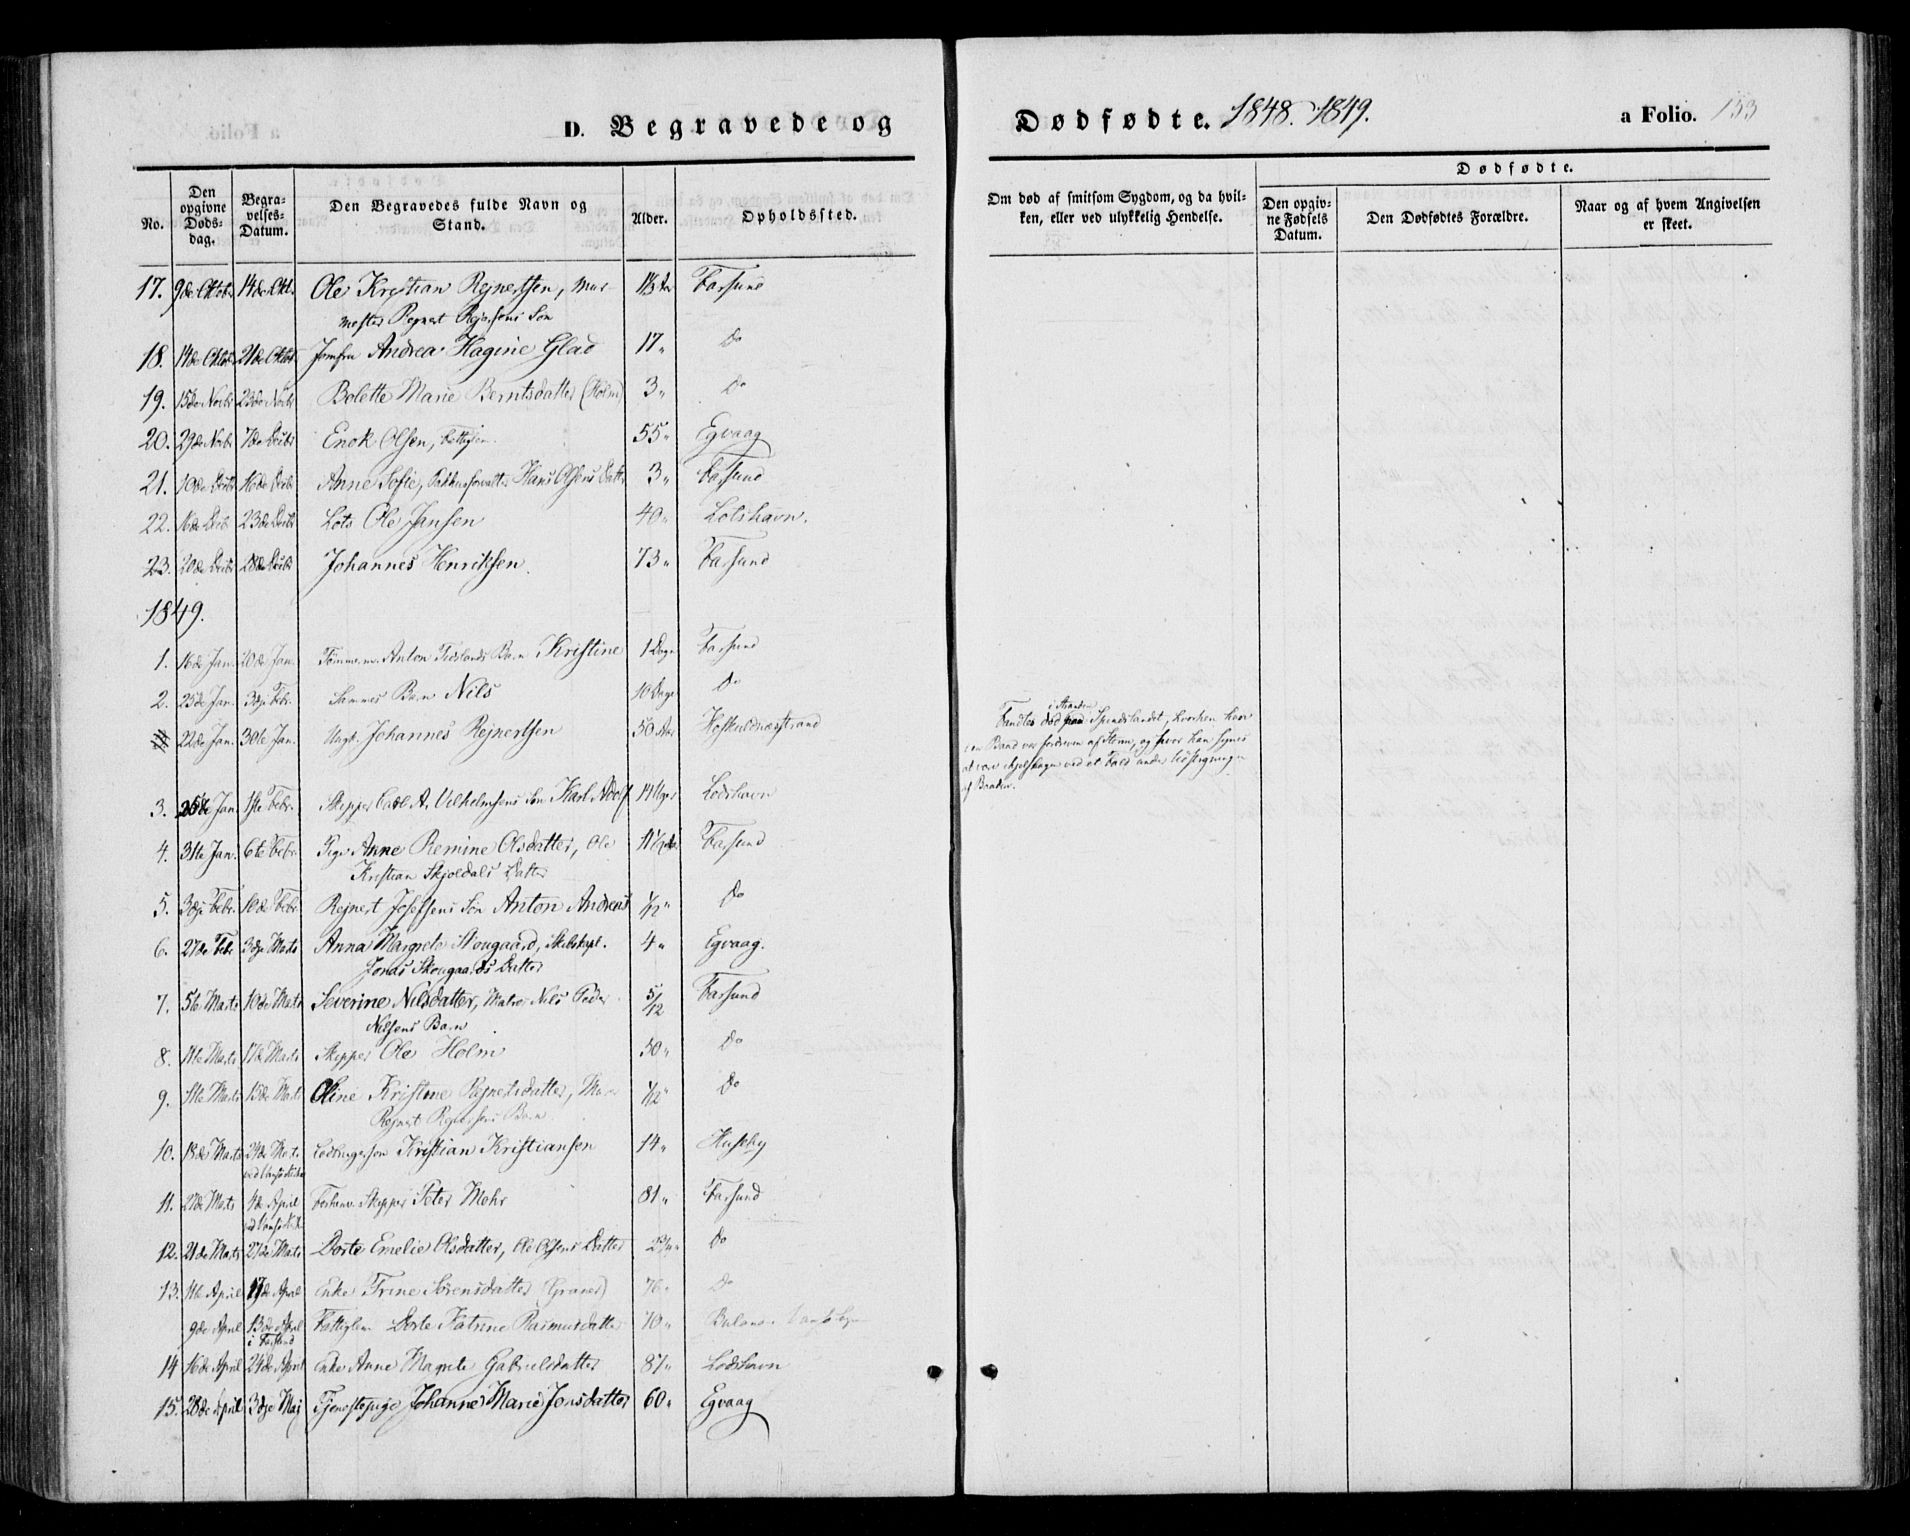 D. Begravede og Dødfødte. 1848. 1849. a Folio. 153
No. Den opgivne Døds-dag. Begra-velses-Datum. Den Begravedes fulde Navn og Stand. Alder. Opholdssted. Om død af smitsom Sygdom, og da hvil-ken, eller ved ulykkelig Hendelse. Dødfødte. Den opgiv-ne Fødsels Datum. Den Dødfødtes Forældre. Naar og af hvem Angivelsen er skeet.
17. 9de Oktobr 14de Okt. Ole Kristian Rejnertsen, Mur-
mester Rejnert Søn Farsund
18. 14de Oktob 21de Oktob Jomfru Andrea Hagine Glad 17 " Do
19. 15de Novbr 23de Novbr Bolette Marie Berntsdatter (Holm) 3 " Do
20. 29de Novbr 7de Decbr Enok Olsen, 55 " Egvaag
21. 10de Decbr 16de Decbr Anne Sofie, Hans Olsens Datter 3 " Farsund
22. 16de Decb. 23de Decbr Lots Ole Jansen 40 " Lotshavn.
23. 20de Decbr 28de Decbr Johannes Henriksen. 73 " Farsund
1849.
1. 16de Jan. 20de Jan. Tømmerm. Anton Barn Kristine 1 Dage Farsund
2. 25de Jan. 3dje Febr. Sammes Barn Nils 10 Dage Do
22de Jan. 30te Jan. Ungk. Johannes Rejnertsen 50 Aar
Fandtes død i Stranden paa Spindslandet, hvorhen hans
Baad var fordreven af Storm, og hvor han synes
at være ihjelslagen ved et Fald under
af Baaden.
3. Jan. 1ste Febr. Skipper Carl A. Vilhelmsens Søn Karl Adolf Uger Lodshavn
4. 31te Jan. 6te Febr. Pige Anne Remine Olsdatter, Ole
Kristian Skjoldals Datter 11 1/2 Farsund
5. 3dje Febr. 10de Febr. Rejnert Josefsens Søn Anton Andreas 1/12 " Do
6. 27de Feb. 3dje Marts Anna Margrete Skougaard, Skibskapt.
Jonas Skougaards Datter 4 " Egvaag.
7. 5te Marts 10de Marts Severine Nilsdatter, Matros Nils Peder
Nilsens Barn 5/12 Farsund
8. 11te Marts 17de Marts Skipper Ole Holm 30 " Do
9. 11te Marts 15de Marts Oline Kristine Rejnertsdatter, Murm
Rejnert Barn 1/12 " Do
10. 18de Marts 24de Mart. Kristian Kristiansen 14 " Huseby
11. 27de Marts 4de April Forhenv. Skipper Peter Mohr 81 " Farsund
12. 21de Marts 27de Marts Dorte Emelie Olsdatter, Ole Olsens Datter Do
13. 11te April 17de April Enke Trine Sørensdatter 76 " Do
9de April 13de April
i Farsund Fattiglem Dorte Katrine Rasmusdatter 70 "
14 16de April 24de April Enke Anne Magrete Gabrielsdatter 87 " Lodshavn
15. 28de April 3dje Maj Tjenestepige Johanne Marie Jonsdatter 60 " Egvaag